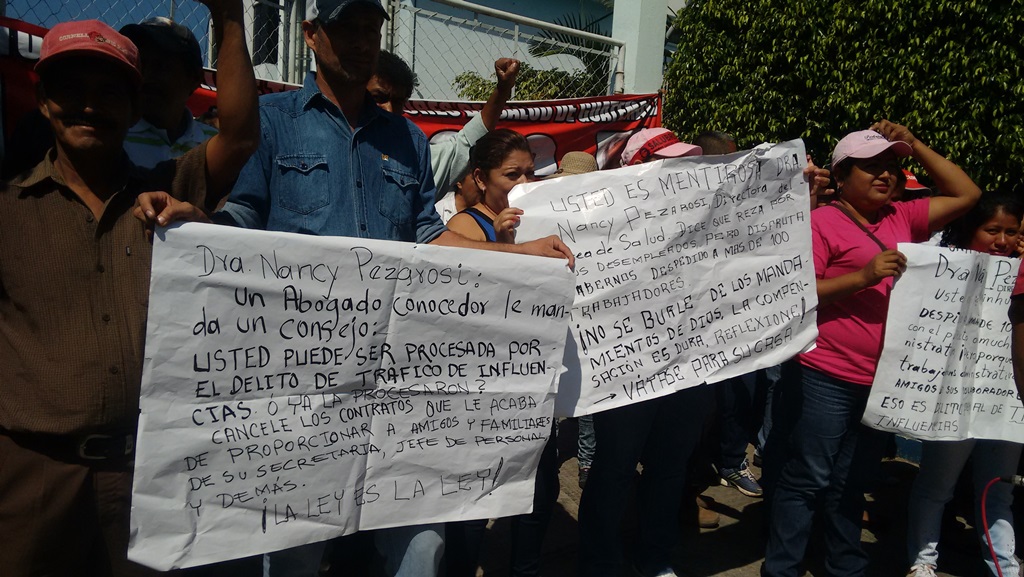 SALUD DE
Dra. Nancy Pezarosi:
un Abogado conocedor le man-
da un consejo:
USTED PUEDE SER PROCESADA POR
EL DELITO DE TRAFICO DE INFLUEN-
CIAS Ó YA LA PROCESARON?
CANCELE LOS CONTRATOS QUE LE ACABA
DE PROPORCIONAR A AMIGOS Y FAMILIARES
DE SU SECRETARIA, JEFE DE PERSONAL,
Y DEMÁS.
¡LA LEY ES LA LEY!
USTED ES MENTIROSA DRA.
Nancy PEZAROSI, Directora del
ea de Salud. DICE QUE REZA POR
OS DESEMPLEADOS, PERO DISFRUTA
ABERNOS DESPEDIDO A MAS DE 100
TRABAJADORES
¡NO SE BURLE DE LOS MANDA
MIENTOS DE DIOS, LA COMPEN-
SACIÓN ES DURA, REFLEXIONE!
→ VÁYASE PARA SU CASA
Dra Na
DESP
DE 10
con el
trabaja
AMIGOS, SUS
ESO ES
INFLUENCIAS